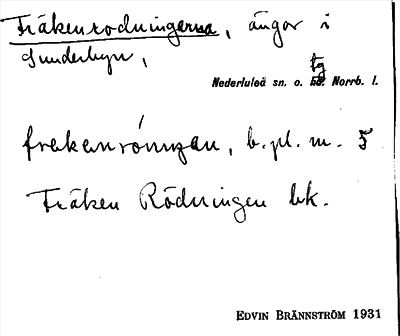 Fräkenrodningerna, ängar i
Sunderbyn,
Nederluleå sn. o. tg Norrb. l.
b. pl. m. 5
Fräken Rödningen lk.
EDVIN BRÄNNSTRÖM 1931